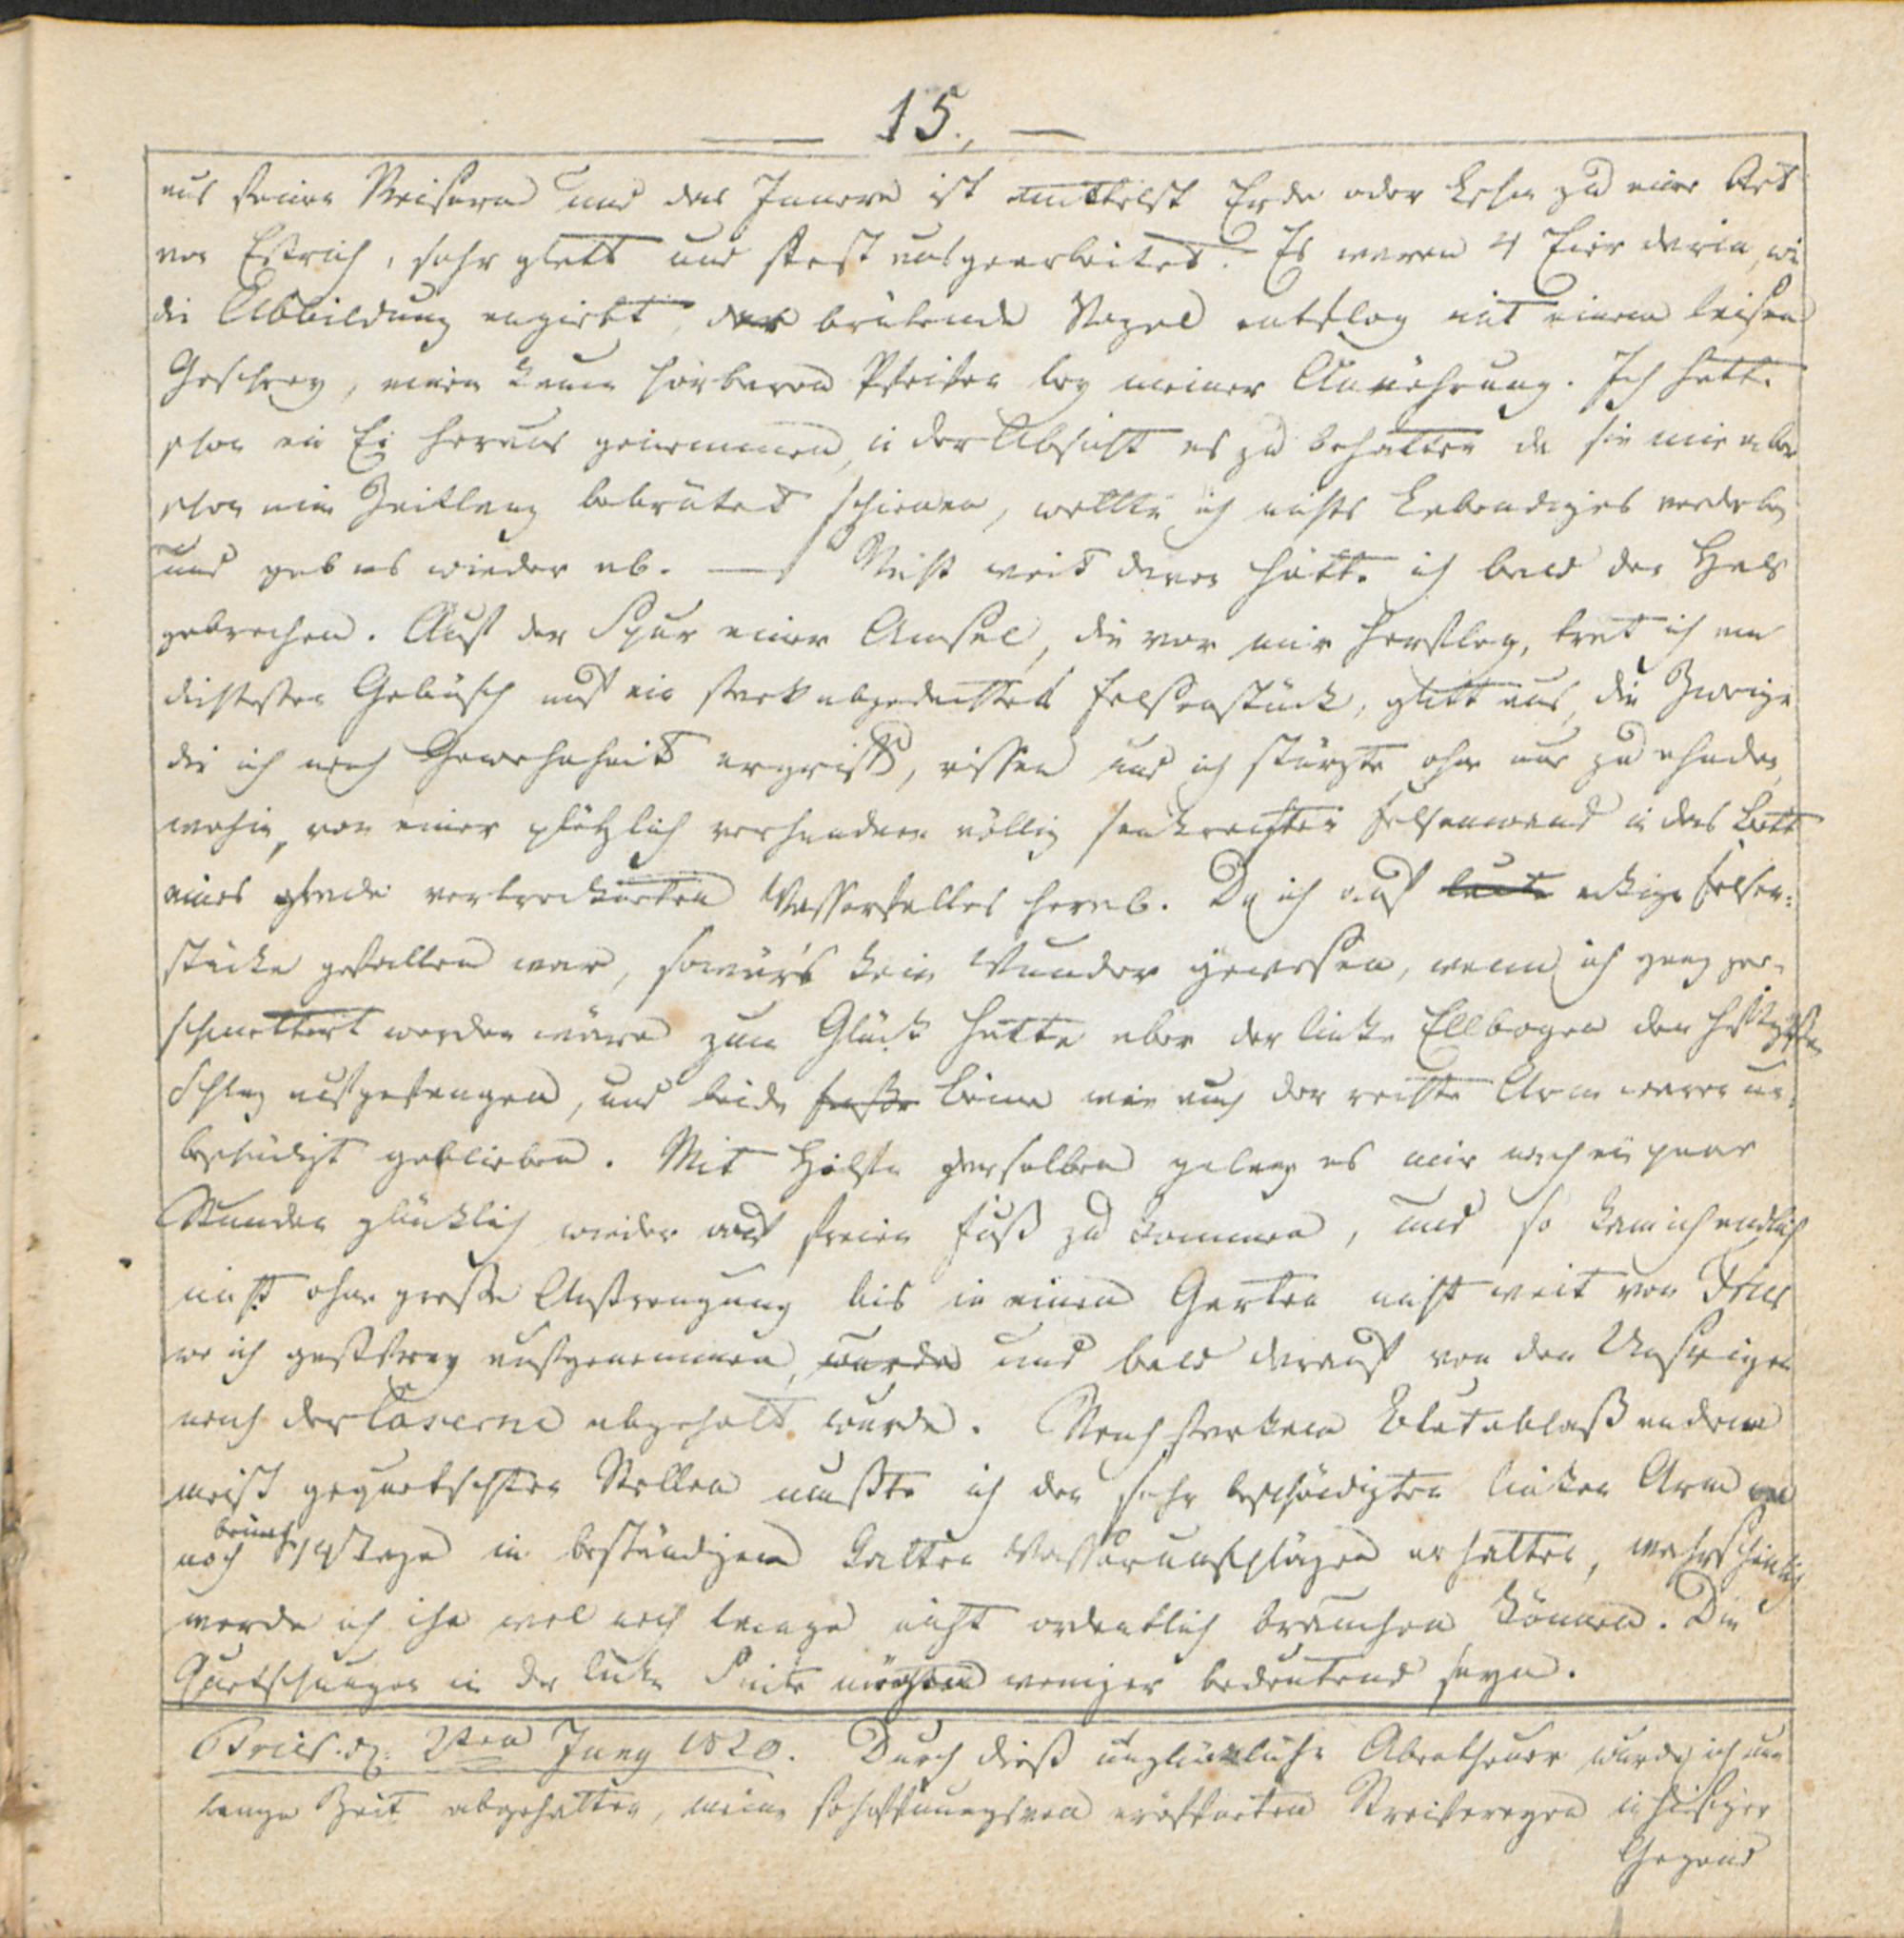 15.
aus feinen Reisern und das Innere ist mittelst Erde oder Lehm zu einer Art
von Estrich, sehr glatt und fest ausgearbeitet. Es waren 4 Eier darin, wie
die Abbildung angiebt, der brütende Vogel entflog mit einem leisen
Geschrey, einem kaum hörbaren Pfeifen bey meiner Annährung. Ich hatte
schon ein Ei heraus genommen, in der Absicht es zu behalten da sie mir aber
schon eine Zeitlang bebrütet schienen, wollte ich nichts Lebendiges verderben
und gab es wieder ab. — Nicht weit davon hätte ich bald den Hals
gebrochen. Auf der Spur einer Amsel, die vor mir herflog, trat ich im
dichtesten Gebüsch auf ein stark abgedachtes Felsenstück, glitt aus, die Zweige
die ich nach Gewohnheit ergriff, rissen und ich stürzte ohne nur zu ahnden
wohin, von einer plötzlich vorhandnen völlig senkrechten Felsenwand in das Bett
eines gerade vertrockneten Wasserfalles herab. Da ich auf lauter eckige Felsen-
stücke gefallen war, so wär's kein Wunder gewesen, wenn ich ganz zer-
schmettert worden wäre zum Glück hatte aber der linke Ellbogen den heftigsten
Schlag aufgefangen, und beide Füße Beine wie auch der rechte Arm waren un-
beschädigt geblieben. Mit Hilfe derselben gelang es mir nach ein paar
Stunden glücklich wieder auf freien Fuß zu kommen, und so kam ich endlich
nicht ohne große Anstrengung bis in einen Garten nicht weit von Fries
wo ich gastfrey aufgenommen, wurde und bald darauf von den Unsrigen
nach der Caserne abgeholt wurde. Nach starkem Blutablaß an den
meist gequetschten Stellen mußte ich den sehr beschädigten linken Arm
noch beinah 14 Tage in beständigen kalten Wasserumschlägen erhalten, wahrscheinlich
werde ich ihn wol noch lange nicht ordentlich brauchen können. Die
Quetschungen in der linken Seite möchten weniger bedeutend seyn.
2ten Juny 1820. Durch dieß unglückliche Abentheuer wurde ich nun
lange Zeit abgehalten, meine so hoffnungsvoll eröffneten Streifereyen in hiesiger
Gegend